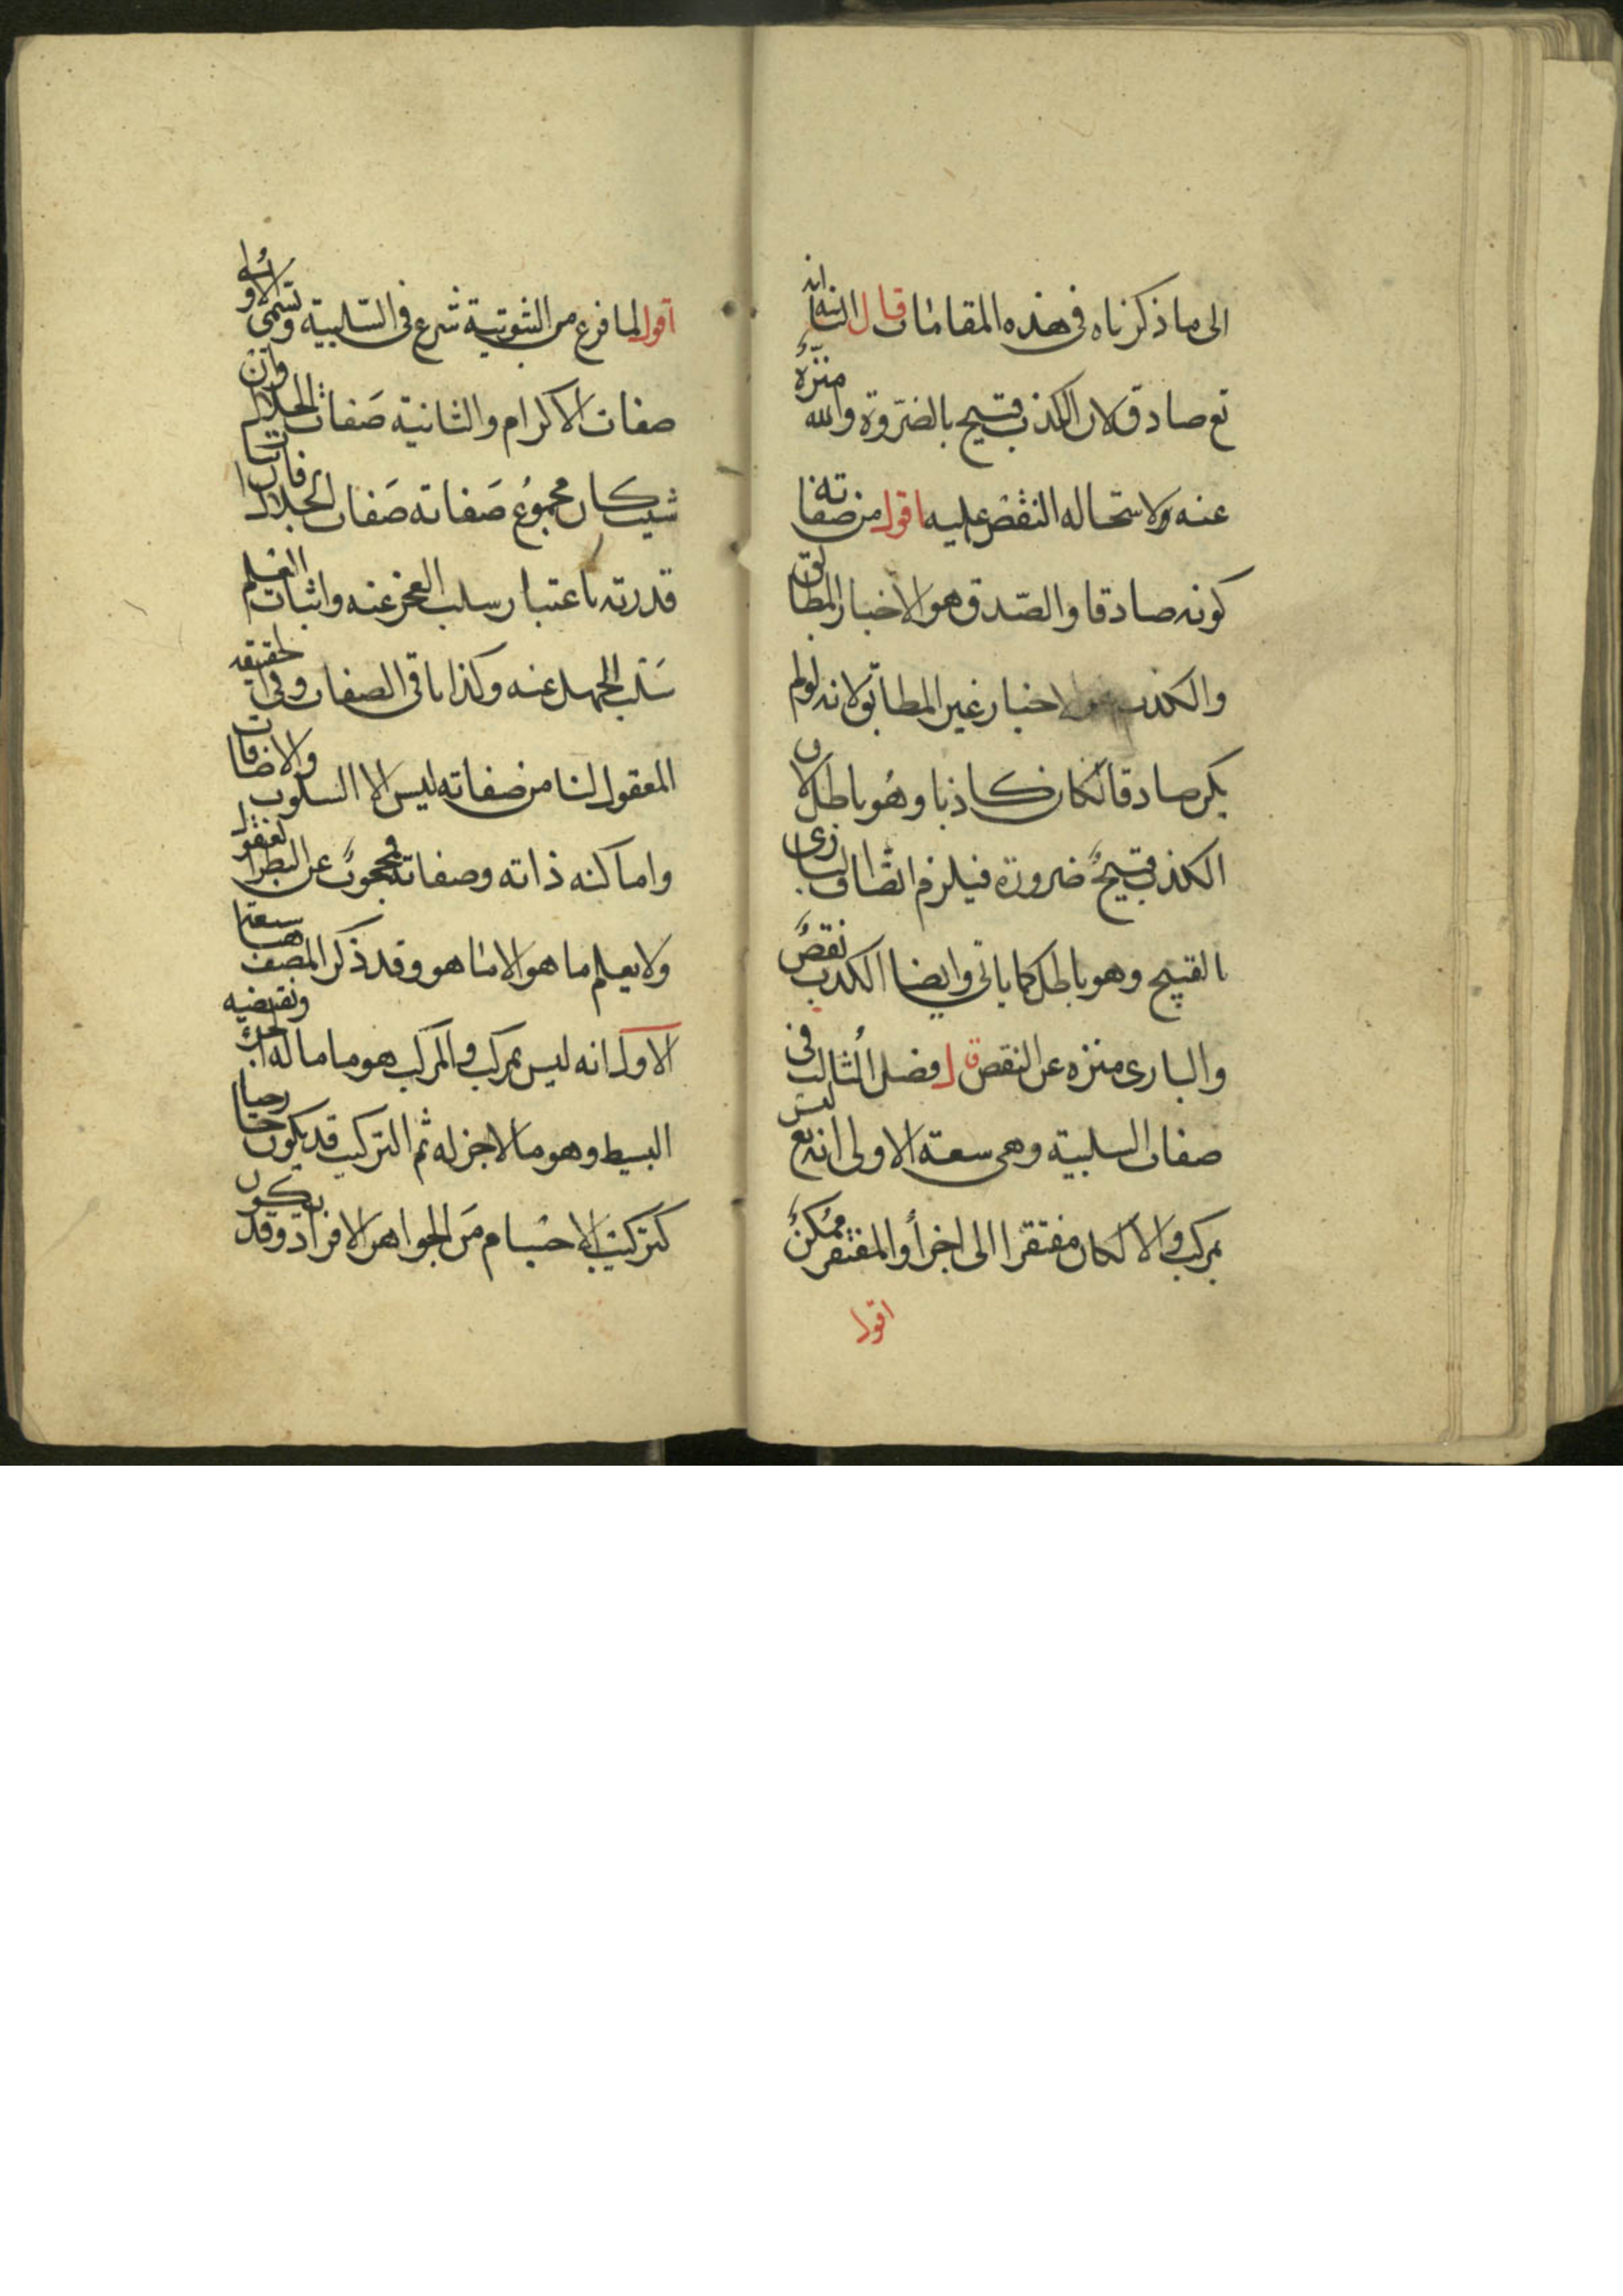 الى ما ذكرناه فى هذه المقامات قال الثامنة انه
تع صادق لان الكذب قبيح بالضرورة والله منزّهٌ
عنه ولاستحاله النقض عليه اقول من صفاته
كونه صادقا والصّدق هو الاخبار المطابق
والكذب هو الاخبار غير المطابق لانه لولم
يكن صادقا لكان كاذبا وهُو باطل لان
الكذب قبيحٌ ضرورة فيلزم اتّصاف البارى
بالقبيح وهو باطل كما ياتى وايضا الكذب نقصٌ
والبارى منزه عن النقص قال فصل الثالث فى
صفات السلبية وهى سعة الاولى انه تع ليس
بمركب والا لكان مفتقرا الى اجزأ والمفتقر ممُكنٌ
اقول
اقول لما فرغ من الثبوتية شرع فى السّلبية وتسمى الاولى
صفات الاكرام والثانية صَفات الجلال وان
شيت كان مجموُع صَفاته صَفات الجلال فان اثبات
قدرته باعتبار سلب العجز عنه واثبات العلم
سَلب الجهل عنه وكذا باقى الصفات وفى الحقيقه
المعقول لنا من صفاته ليس الا السلوب والاضافات
واما كنه ذاته وصفاته فمحجوبٌ عن النظر العقول
ولا يعلم ما هو الا ما هو وقد ذكر المصنف هنا سبعة
الاول انه ليس بمركب والمركب هو ما ماله اجزء ونقيضيه
البسيط وهو ما لا جزله ثم التركيب قد يكون خارجيا
كتركيب الاجسام مَن الجواهر الافراد وقد يكون